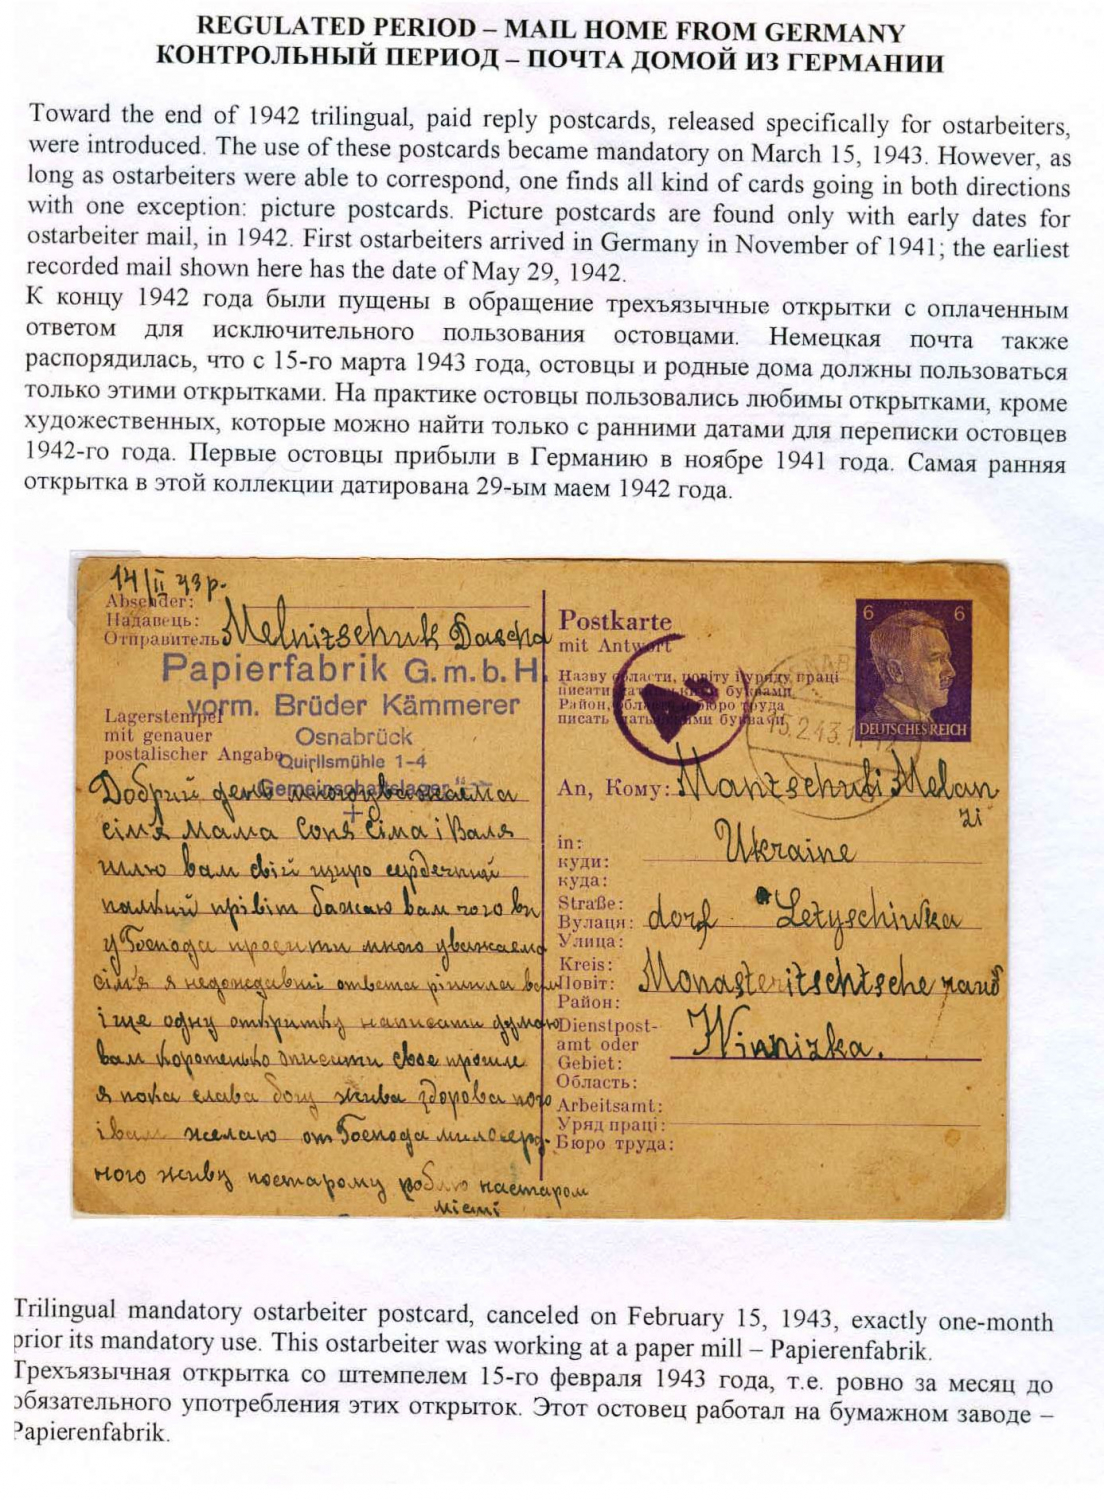 REGULATED PERIOD – MAIL HOME FROM GERMANY
КОНТРОЛЬНЫЙ ПЕРИОД – ПОЧТА ДОМОЙ ИЗ ГЕРМАНИИ
Toward the end of 1942 trilingual, paid reply postcards, released specifically for ostarbeiters,
were introduced. The use of these postcards became mandatory on March 15, 1943. However, as
long as ostarbeiters were able to correspond, one finds all kind of cards going in both directions
with one exception: picture postcards. Picture postcards are found only with early dates for
ostarbeiter mail, in 1942. First ostarbeiters arrived in Germany in November of 1941; the earliest
recorded mail shown here has the date of May 29, 1942.
К концу 1942 года были пущены в обращение трехъязычные открытки с оплаченным
ответом для исключительного пользования остовцами. Немецкая почта также
распорядилась, что с 15-го марта 1943 года, остовцы и родные дома должны пользоваться
только этими открытками. На практике остовцы пользовались любимы открытками, кроме
художественных, которые можно найти только с ранними датами для переписки остовцев
1942-го года. Первые остовцы прибыли в Германию в ноябре 1941 года. Самая ранняя
открытка в этой коллекции датирована 29-ым маем 1942 года.
14/II 43 р.
Absender:
Надавець:
Отправитель
Melnizschuk Dascha
Papierfabrik G.m.b.H.
vorm. Brüder Kämmerer
Osnabrück
Quirllsmühle 1-4
Gemeinschaftslager
Lagerstempel
mit genauer
postalischer Angabe
Добрий день многоуважаєма
сім'я мама Соня Сіма і Валя
шлю вам свій щиро сердечний
палкий привіт бажаю вам чого ви
у Господа просити много уважаемо
сім'я я недождавши ответа рішила вам
і ще одну открытку написати думаю
вам коротенько описати своє прошле
я пока слава богу жива здорова того
і вам желаю от Господа милосерд-
ного живу постарому роблю настаром
місті
Postkarte
mit Antwort
Назву области, повіту і уряду праці
писати латинськими буквами
Район, область и бюро труда
писать латынскими буквами
15.2.43
6 6
DEUTSCHES REICH
An, Кому: Manzschuki Melan
zi
in:
куди:
куда:
Ukraine
Straße:
Вулаця:
Улица:
dorf Letyschiwka
Kreis:
Повіт:
Район:
Monasteritschtsche
Dienstpost-
amt oder
Gebiet:
Область:
Winnizka.
Arbeitsamt:
Уряд праці:
Бюро труда:
Trilingual mandatory ostarbeiter postcard, canceled on February 15, 1943, exactly one-month
prior its mandatory use. This ostarbeiter was working at a paper mill – Papierenfabrik.
Трехъязычная открытка со штемпелем 15-го февраля 1943 года, т.е. ровно за месяц до
обязательного употребления этих открыток. Этот остовец работал на бумажном заводе –
Papierenfabrik.